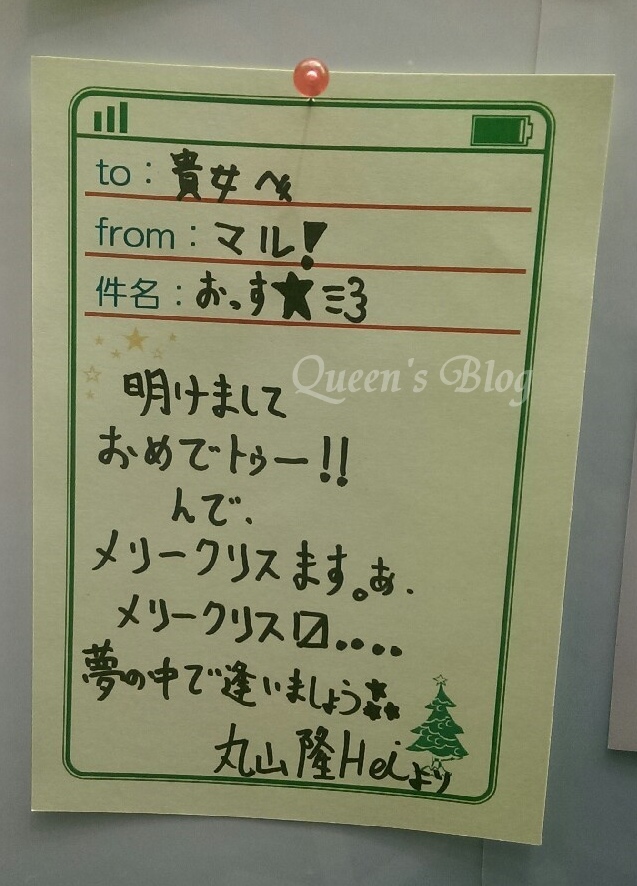 to：貴女へ
from：マル！
件名：おっす★ミ3
Queen's Blog
明けまして
おめでトゥー!!
んで、
メリークリスます。あ、
メリークリス〼....
夢の中で逢いましょう
丸山隆Heiより